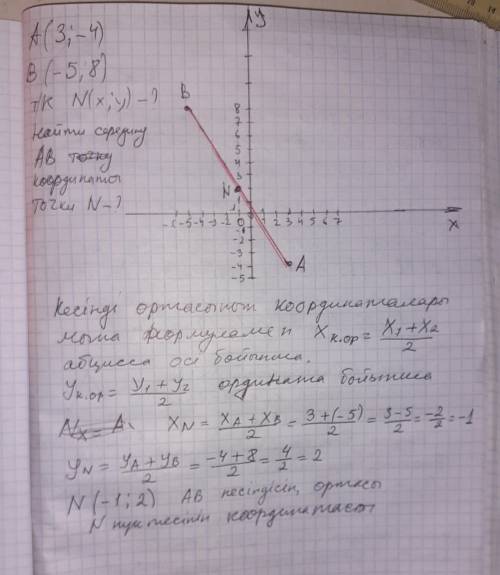 A(3;-4)
B(-5;8)
т/к N(x;y)-?
найти середину
AB точку
координаты
точки N-?
y
B
8
7
6
5
4
3
2
N
1
-6 -5 -4 -3 -2 -1 0 1 2 3 4 5 6 7
x
-1
-2
-3
-4
-5
A
Кесінді ортасының координаталары
мына формуламен x к.ор = (x₁+x₂)/2
абцисса осі бойынша.
y к.ор = (y₁+y₂)/2 ордината бойынша
x_N = (x_A+x_B)/2 = (3+(-5))/2 = (3-5)/2 = -2/2 = -1
y_N = (y_A+y_B)/2 = (-4+8)/2 = 4/2 = 2
N(-1;2) AB кесіндісің ортасы
N нүктесінің координатасы